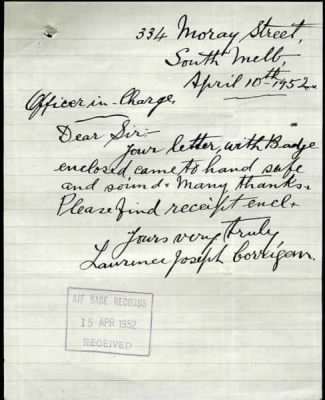 334 Moray Street,
South Melb,
April 10th-1952.
Officer-in-Charge,
Dear Sir:-
Your letter, with Badge
enclosed came to hand safe
and sound. Many thanks.
Please find receipt encl.
Yours very truly
Laurence Joseph Corrigan.
AIF BASE RECORDS
15 APR 1952
RECEIVED